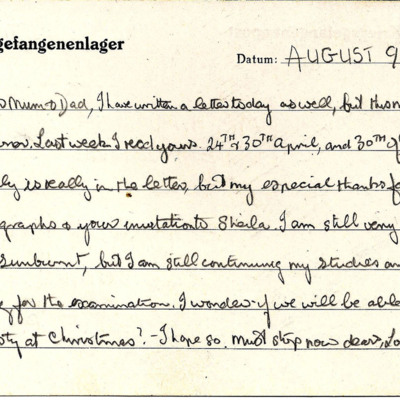 gefangenenlager
Datum: AUGUST 9
Mum & Dad, I have written a letter today as well, but this
Last week I read yours 24TH & 30TH April, and 30TH of
is really in the letter, but my especial thanks f
graphs & your invitation to Sheila. I am still very
sunburnt, but I am still continuing my studies an
for the examination. I wonder if we will be able
at Christmas? - I hope so. Must stop now dears, Lo